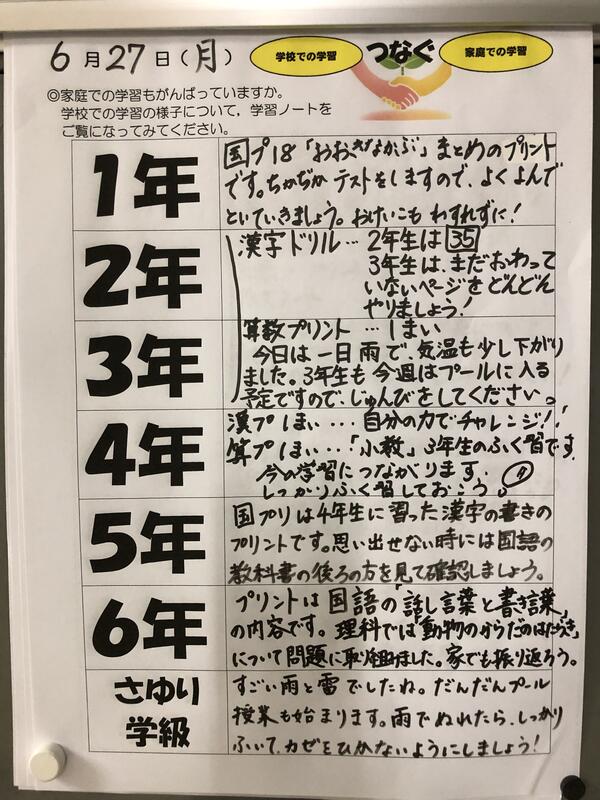 6月27日(月)
学校での学習
つなぐ
家庭での学習
◎家庭での学習もがんばっていますか。
学校での学習の様子について，学習ノートを
ご覧になってみてください。
1年
国プ18「おおきなかぶ」まとめのプリント
です。ちかぢか テストをしますので、よくよんで
といていきましょう。おけいこも わすれずに!
2年
漢字ドリル… 2年生は 35
3年生は、まだおわって
いないページをどんどん
やりましょう!
3年
算数プリント …しまい
今日は一日雨で、気温も少し下がり
ました。3年生も今週はプールに入る
予定ですので、じゅんびをしてください。
4年
漢プ1まい…自分の力でチャレンジ!!
算プ1まい…「小数」3年生のふく習です。
今の学習につながります。
しっかりふく習しておこう。
5年
国プリは4年生に習った漢字の書きの
プリントです。思い出せない時には国語の
教科書の後ろの方を見て確認しましょう。
6年
プリントは国語の「話し言葉と書き言葉」
の内容です。理科では「動物のからだのはたらき」
について問題に取り組みました。家でも振り返ろう。
さゆり
学級
すごい雨と雷でしたね。だんだんプール
授業も始まります。雨でぬれたら、しっかり
ふいて、カゼをひかないようにしましょう!